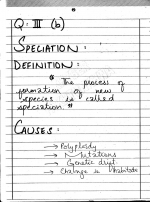 Q. III (b)
SPECIATION :
DEFINITION :
" The process of
formation of new
species is called
speciation. "
CAUSES :
→ Polyploidy
→ Mutations
→ Genetic drift
→ Change in Habitats